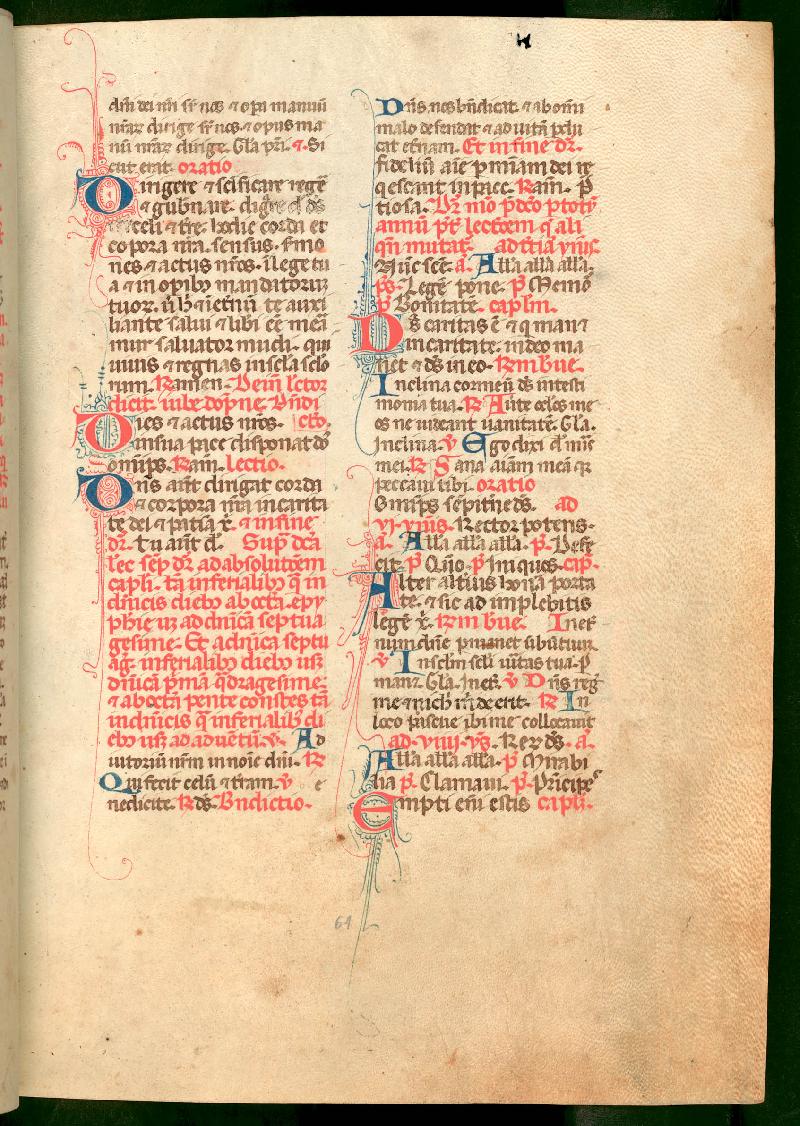 dñi dei nr̄i sr̄ nos ⁊ opa manuū
nr̄aꝝ dirige sr̄ nos. ⁊ opus ma
nū nr̄aꝝ dirige. Gl̄a pr̄i. ⁊. Si
cut erat. oratio
Dirigere ⁊ sc̄ificare regē
⁊ gub̄nare. dig̅re d̅
celi ⁊ tr̄e. hodie corda et
corpora nr̄a. sensus. s̄mo
nes ⁊ actus nr̄os. ī lege tu
a ⁊ in opibꝫ mandatoruꝫ
tuoꝝ. ūt h̄ ⁊ iet̄nū te auxi
liante salui ⁊ lib̄i ēē meā
mur saluator mūdi. qui
uiuis ⁊ regnas in sc̄la sc̄lo
rum. ℞ amen. Deīn lector
dicit. iube dopne. Bn̄di
Dies ⁊ actus nr̄os. cto.
in sua pace disponat dō
omīps. ℞ am̄. lectio.
Dn̄s aūt dirigat corda
⁊ corpora nr̄a in carita
te dei ⁊ patiā x̄. ⁊ in fine
dr̄. Tu aūt d̄. Sup̄ dc̄a
lec̄ sep̄ dr̄ ad absolutōem
capli. tā in ferialibꝫ q̄ in
dn̄icis diebꝫ ab octa. epy
phīe uꝫ ad dn̄ica septua
gesime. Et a dn̄ica septu
ag. in ferialibꝫ diebꝫ usꝫ
dn̄icā p̄mā q̄dragesime.
⁊ ab octa pente costes tā
in dn̄icis q̄ in ferialibꝫ di
ebꝫ usꝫ ad aduētū. ℣. Ad
iutorium nr̄m in noīe dn̄i. ℞
Qui fecit celū ⁊ terram. ℣ e
nedicite. ℞ ds̄. Bn̄dictio.
Dn̄s. nos bn̄dicat. ⁊ ab om̄i
malo defendat ⁊ ad uitā ꝑdu
cat et̄nam. Et in fine dr̄.
fideliū aīe ꝑ m̄iam dei re
qescant in pace. ℞ am̄. P̄
tiosa. Dr̄ mō p̄dc̄o ꝑ totū
annū pr̄t lectōem q̄ ali
qn̄ mutat᷑. ad tt̄iā ymꝰ.
Nūc sc̄e. ā. Alla alla alla.
p̄s. Legē pone. p̄ Memō
p̄ Bonitatē. caplm.
Ds̄ caritas ē ⁊ q̄ man⁊
in caritate. in deo ma
net ⁊ ds̄ in eo. ℞ m bue.
Inclina cor meū dš in testi
monia tua. ℞ Auˀte oclos me
os ne uideant uanitatē. Gl̄a.
Inclina. ℣ Ego dixi dn̄e mis̄e
mei. ℞ Sana aīam meā qꝛ
peccaui tibi. oratio
Omīps sēpit̄ne ds̄. ad
vj. ymꝰ. Rector potens.
ā. Alla alla alla. p̄. Defe
cit. p̄ Quō. p̄ Iniquos. cap.
Alter alt̄ius hon̄a porta
te. ⁊ sic ad implebitis
legē x̄. ℞ m bue. In et̄
num dn̄e ꝑmanet uˀbū tuū.
℣ In sclm̄ scl̄i uitas tua. ꝑ
man⁊. Gl̄a. In et̄. ℣ Dn̄s reg̅
me ⁊ nich̅ m̄ de erit. ℞ In
loco pascue ibi me collocauit
ad. viiij. yꝰ. Rex ds̄. ā.
Alla alla alla. p̄ Mirabi
lia p̄. Clamaui. p̄. Pn̄cipes
Empti eni̅ estis capl̄.
61